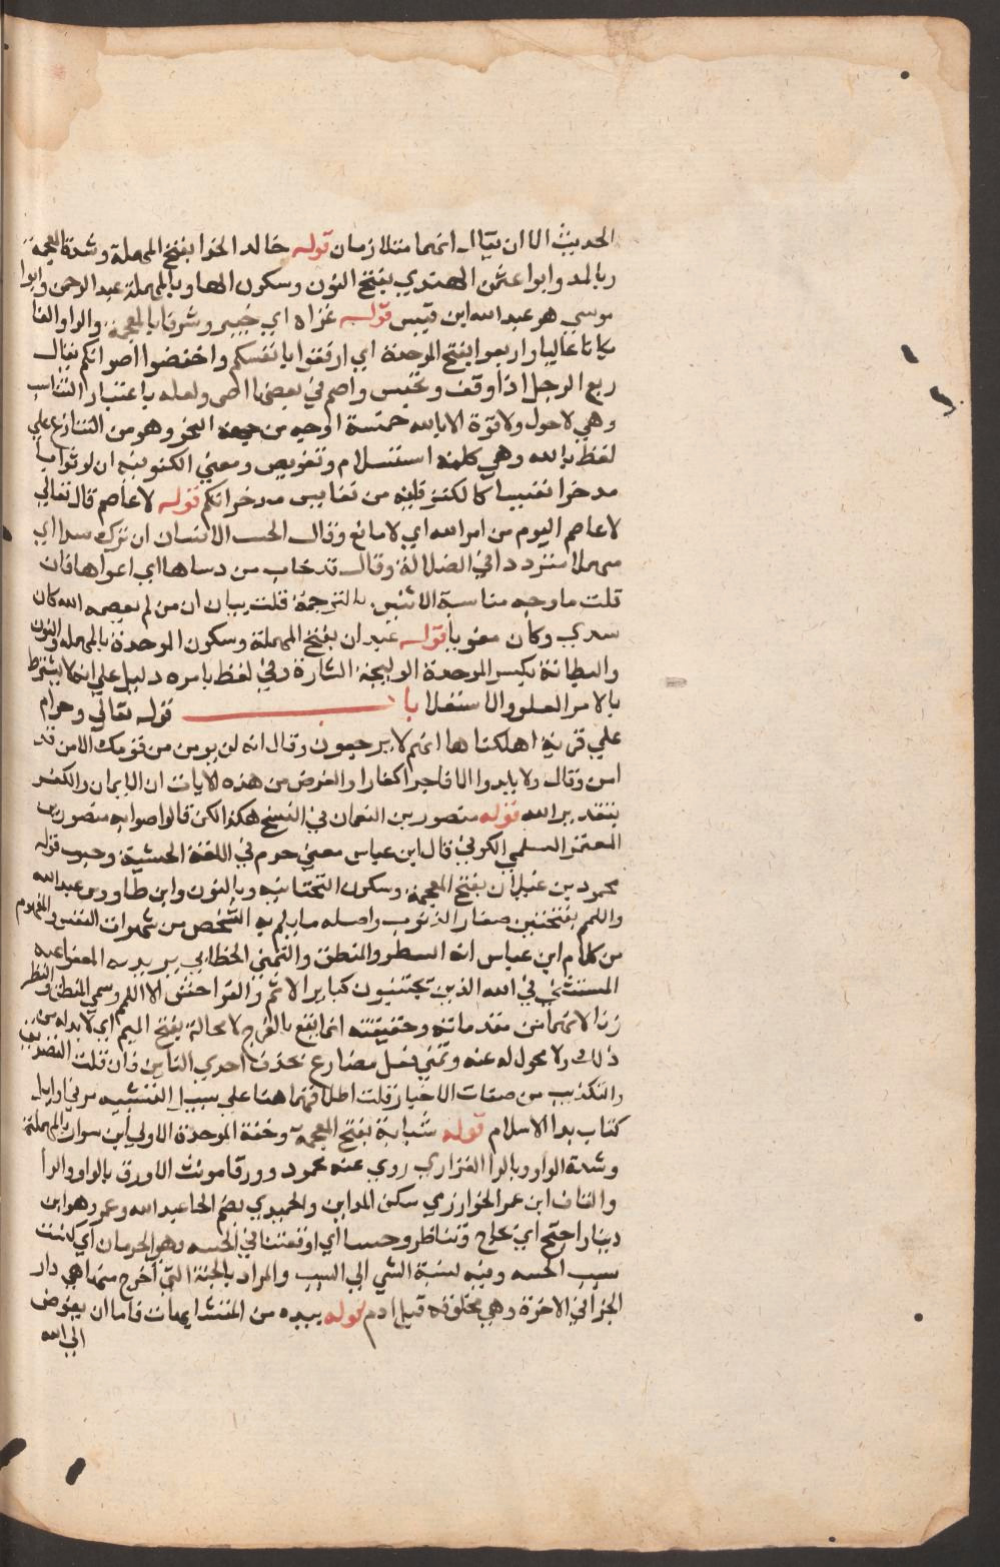 الحديث الا ان يقال انهما متلازمان قوله خالد الحذا بفتح المهملة وشدة المعجمة
وبالمد وابوا عثمن الهندي بفتح النون وسكون الها وبالمهملة عبد الرحمن وابوا
موسي هو عبد الله ابن قيس قوله غزاة اي خيبر وشرفا بالمعجمة والراو الفا
مكانا عاليا واربعوا بفتح الموحدة اي ارفقوا بانفسكم واخفضوا اصواتكم يقال
ربع الرجل اذا وقف وتحبس واصم في بعضها اصما ولعله باعتبار التناسب
وهي لاحول ولا قوة الا بالله خمسة اوجه من جهة النحو وهو من التنازع علي
لفظ بالله وهي كلمة استسلام وتفويض ومعني الكنوينه ان لو ثوابا
مدخرا نفيسا كالكنز فانه من نفايس مدخراتكم قوله لاعاصم قال تعالي
لاعاصم اليوم من امر الله اي لا مانع وقال الحسب الانسان ان نترك سدا اي
مهملا مترددا في الضلالة وقال قد خاب من دساها اي اغواها فان
قلت ما وجه مناسبة الاثنين بالترجمة قلت بيان ان من لم يعصمه الله كان
سدي وكان مغويا قوله عبدان بفتح المهملة وسكون الموحدة بالمهملة والنون
والبطانة بكسر الموحدة الوليجة الشارة وفي لفظ يامره دليل علي انه لا يشترط
بالامر العلو والاستعلا باب قوله تعالي وحرام
علي قرية اهلكناها انهم لايرجعون وقال انه لن يومن من قومك الا من قد
امن وقال ولا يلدوا الا فاجرا كفارا والغرض من هذه الايات ان الايمان والكفر
بتقدير الله قوله منصور بن النعمان في النسخ هكذا لكن قالوا صوابه منصور بن
المعتمر السلمي الكوفي قال ابن عباس معني حرم في اللغة الحبشية وجب قوله
محمود بن غيلان بفتح المعجمة وسكون التحتانيه وبالنون وابن طاوس عبد الله
واللمم بفتحتين صغار الذنوب واصله ما يلم به الشخص من شهوات النفس والمفهوم
من كلام ابن عباس انه النظر والنطق والتمني الخطابي يريد به المعفو عنه
المستثني في الله الذين يجتنبون كباير الاثم والفواحش الا اللمم وسمي المنطق والنظر
زنا لانهما من مقدماته وحقيقته انما يقع بالفرج لامحالة بفتح الميم اي لا بد له من
ذلك ولا تحول له عنه وتمني بفعل مضارع بحذف احدي التاين فان قلت التصديق
والتكذيب من صفات الاخبار قلت اطلاقهما هنا علي سبيل التشبيه مر في اوايل
كتاب بدا الاسلام قوله شبابة بفتح المعجمة وخفة الموحدة الاولي ابن سوار بالمهملة
وشدة الواو وبالرا الفزاري روي عنه محمود وورقا مونث الاورق بالواو والرا
والقاف ابن عمر الخوارزمي سكن المداين والحميدي بضم الحا عبد الله وعمرو هو ابن
دينار احتج اي تحاج وتناظر وحسنا اي اوقعتنا في الخسه وهو الحرمان اي كنت
سبب الخسه ومنه لنسبة الشي الي السبب والمراد بالجنة التي اخرج منها هي دار
الجزا في الاخرة وهي مخلوقة قبل ادم قوله بيده من المتشابهات فاما ان يفوض
الي الله